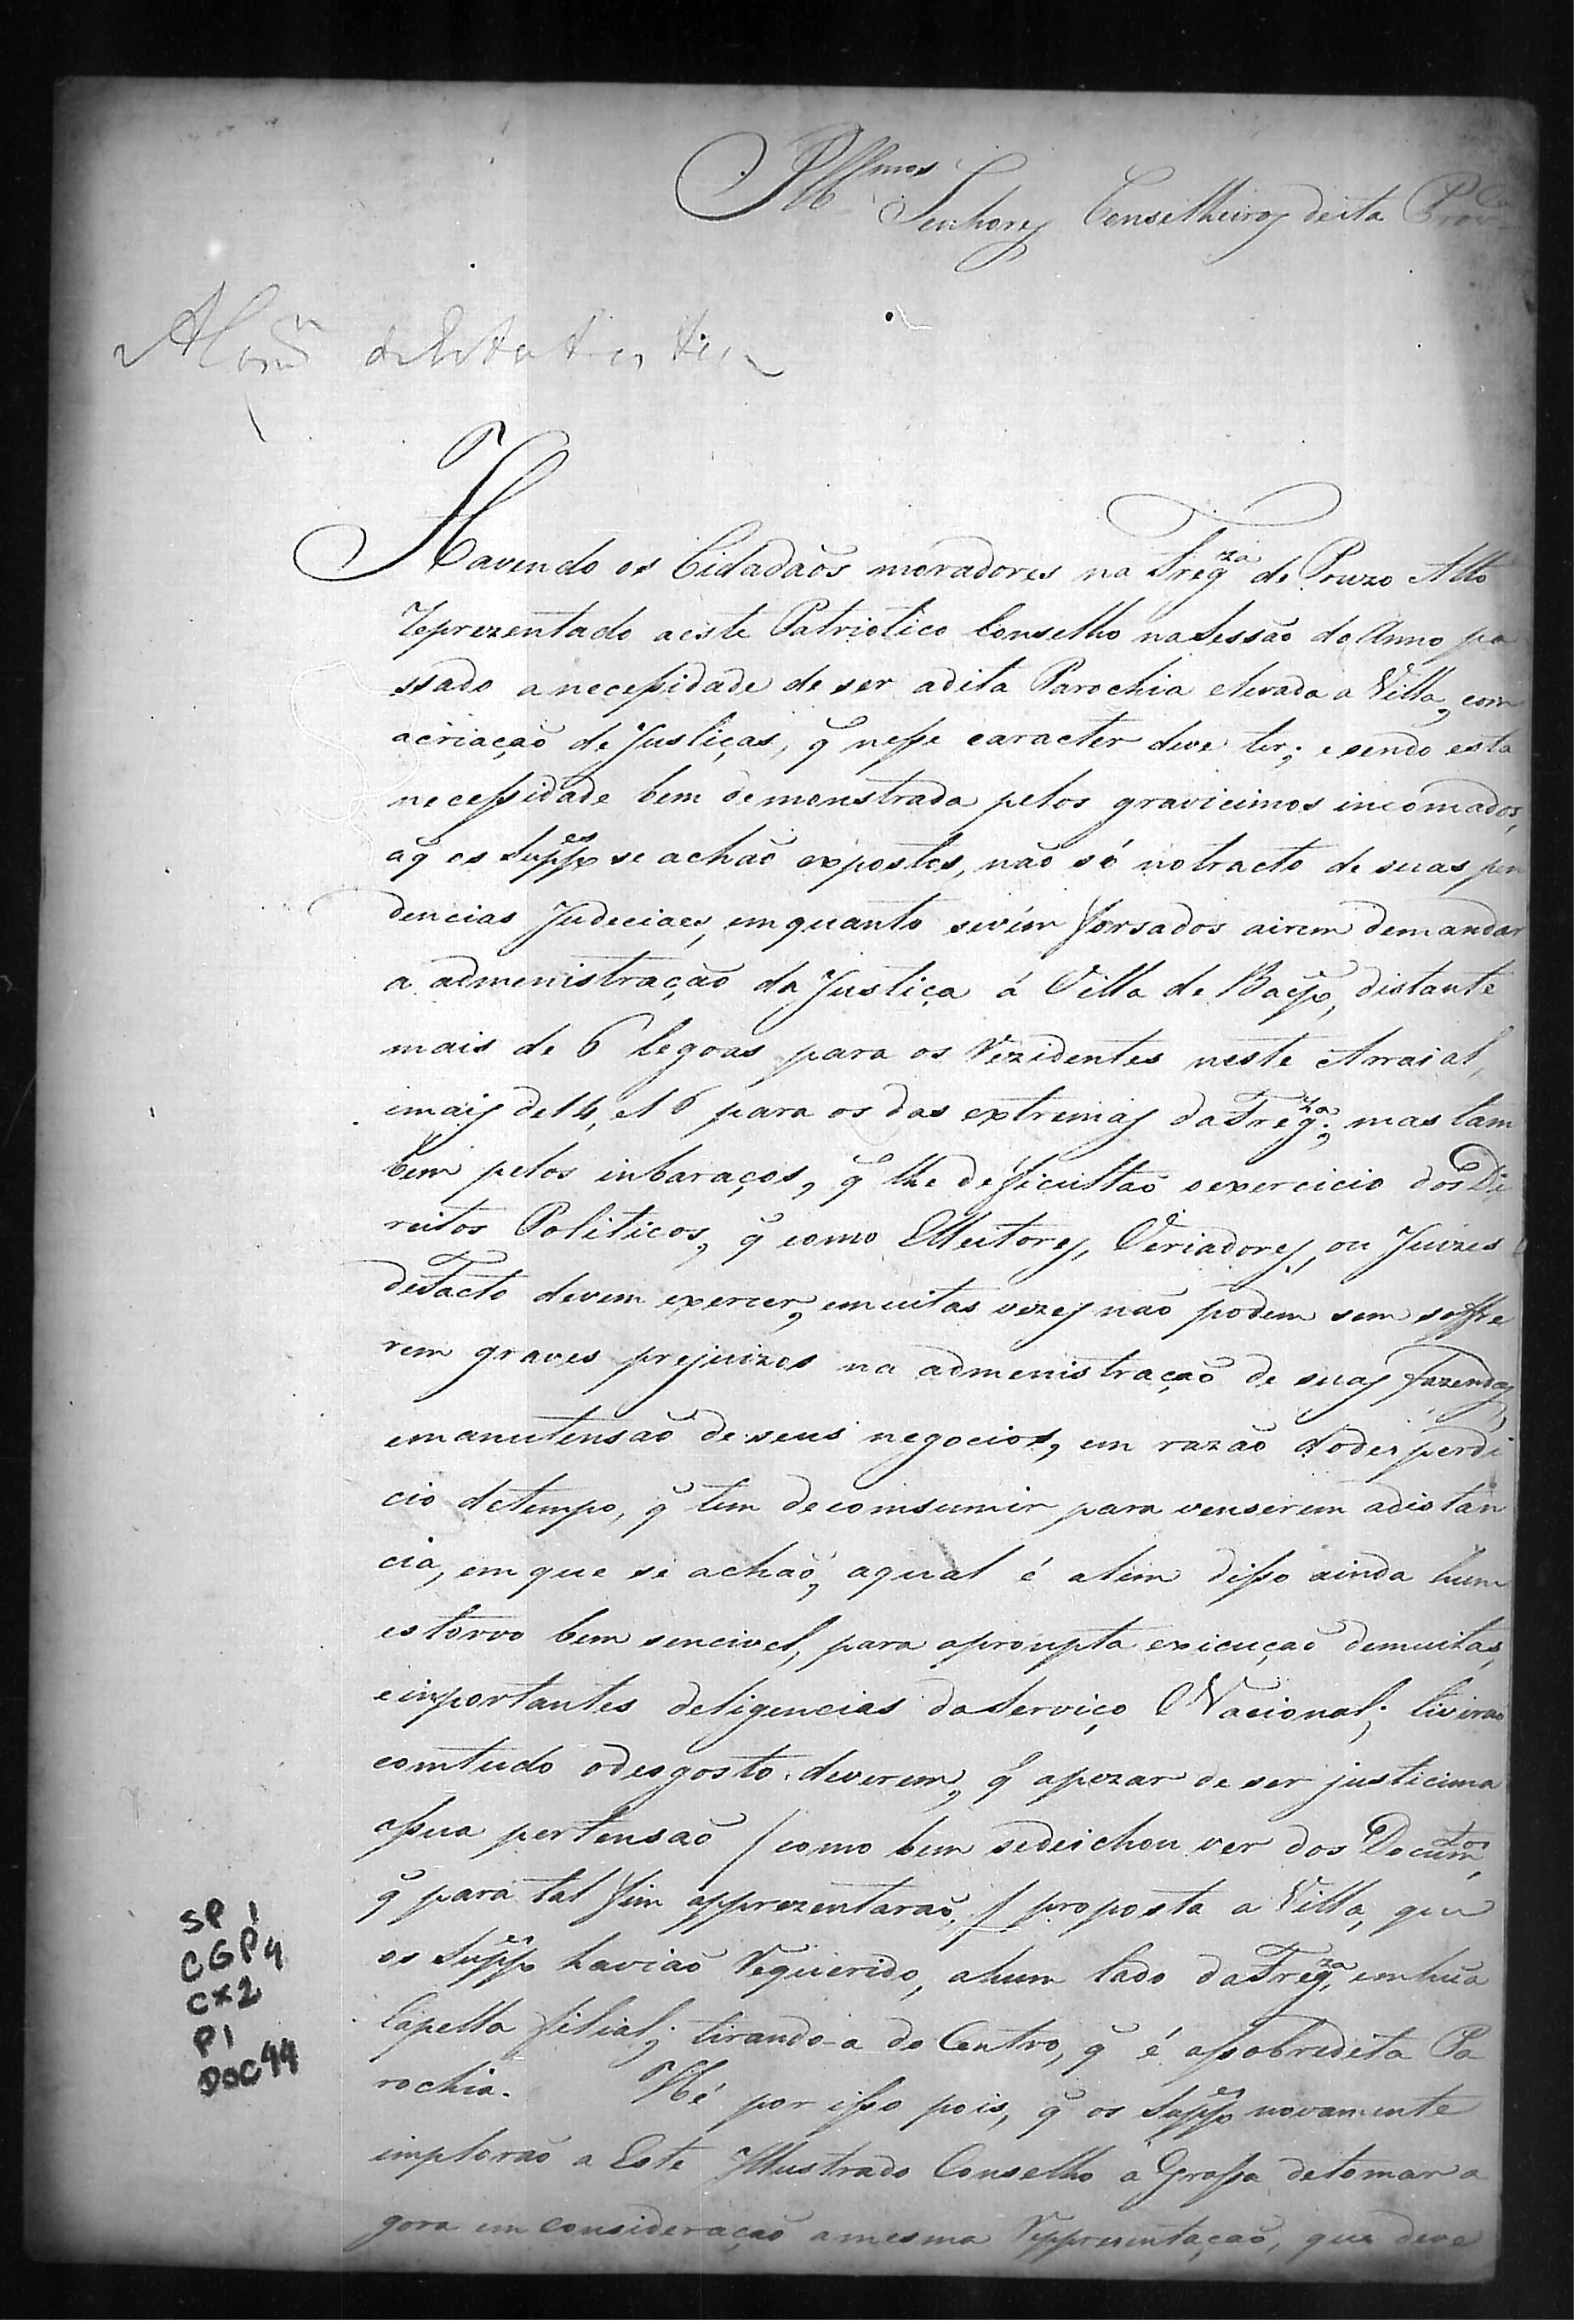 Illmos Senhores Conselheiros desta Provca
A Comm de Estatistica
Havendo os Cidadaõs moradores na Fregza de Pouzo Alto
reprezentado aeste Patriotico Conselho na Sessaõ do Anno pa
ssado a necessidade de ser adita Parochia elevada a Villa, com
acriaçaõ de Justiças, q̃ nesse caracter deve ter; e sendo esta
necessidade bem demonstrada pelos gravicimos incomados,
aq̃ os Suppes se achaõ expostos, naõ só notracto de suas pen
dencias Judeciaes, emquanto sevém forsados airem demandar
a admenistraçaõ da Justiça á Villa de Baepe, distante
mais de 6 legoas para os rezidentes neste Arraial,
emais de 14, e 16 para os das extremas da Fregza; mas tam
bem pelos inbaraços, q̃ lhe deficultaõ oexercicio dos Di
reitos Politicos, q̃ como Elleitores, Veriadores, ou Juizes
deFacto devem exercer, emuitas vezes naõ podem sem soffre
rem graves prejuizos na admenistraçaõ de suas fazendas,
emanutensaõ de seus negocios, em razaõ dodesperdi
cio detempo, q̃ tem deconsumir para venserem adistan
cia, em que se achaõ, aqual é alem disso ainda hum
estorvo bem sencivel, para aprompta execuçaõ demuitas,
einportantes deligencias do Serviço Nacional; tiveraõ
comtudo odesgosto deverem, q̃ apezar de ser justicima
assua pertensaõ / como bem sedeichou ver dos Documtos,
q̃ para tal fim apprezentaraõ / proposta a Villa, que
os Suppes haviaõ requerido, ahum lado da Fregza, emhũa
Capella filial; tirando-a do Centro, q̃ é assobredita Pa
rochia. Hé por isso pois, q̃ os Suppes novamente
imploraõ a Este Illustrado Conselho a Grassa detomar a
gora em consideraçaõ amesma reppresentaçaõ, que deve
SP 1
CGP4
CX2
P1
DOC 44